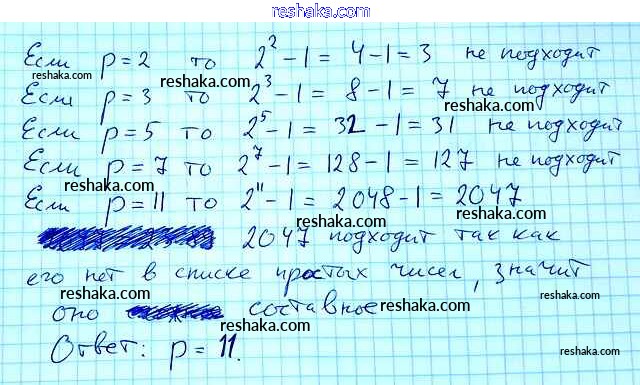 reshaka.com
Если p = 2 то 2² - 1 = 4 - 1 = 3 не подходит
reshaka.com reshaka.com reshaka.com
Если p = 3 то 2³ - 1 = 8 - 1 = 7 не подходит
reshaka.com
Если p = 5 то 2⁵ - 1 = 32 - 1 = 31 не подходит
reshaka.com reshaka.com
Если p = 7 то 2⁷ - 1 = 128 - 1 = 127 не подходит
reshaka.com reshaka.com
Если p = 11 то 2¹¹ - 1 = 2048 - 1 = 2047
reshaka.com reshaka.com
2047 подходит так как
его нет в списке простых чисел, значит
reshaka.com reshaka.com reshaka.com
оно составное
Ответ: p = 11.
reshaka.com reshaka.com
reshaka.com